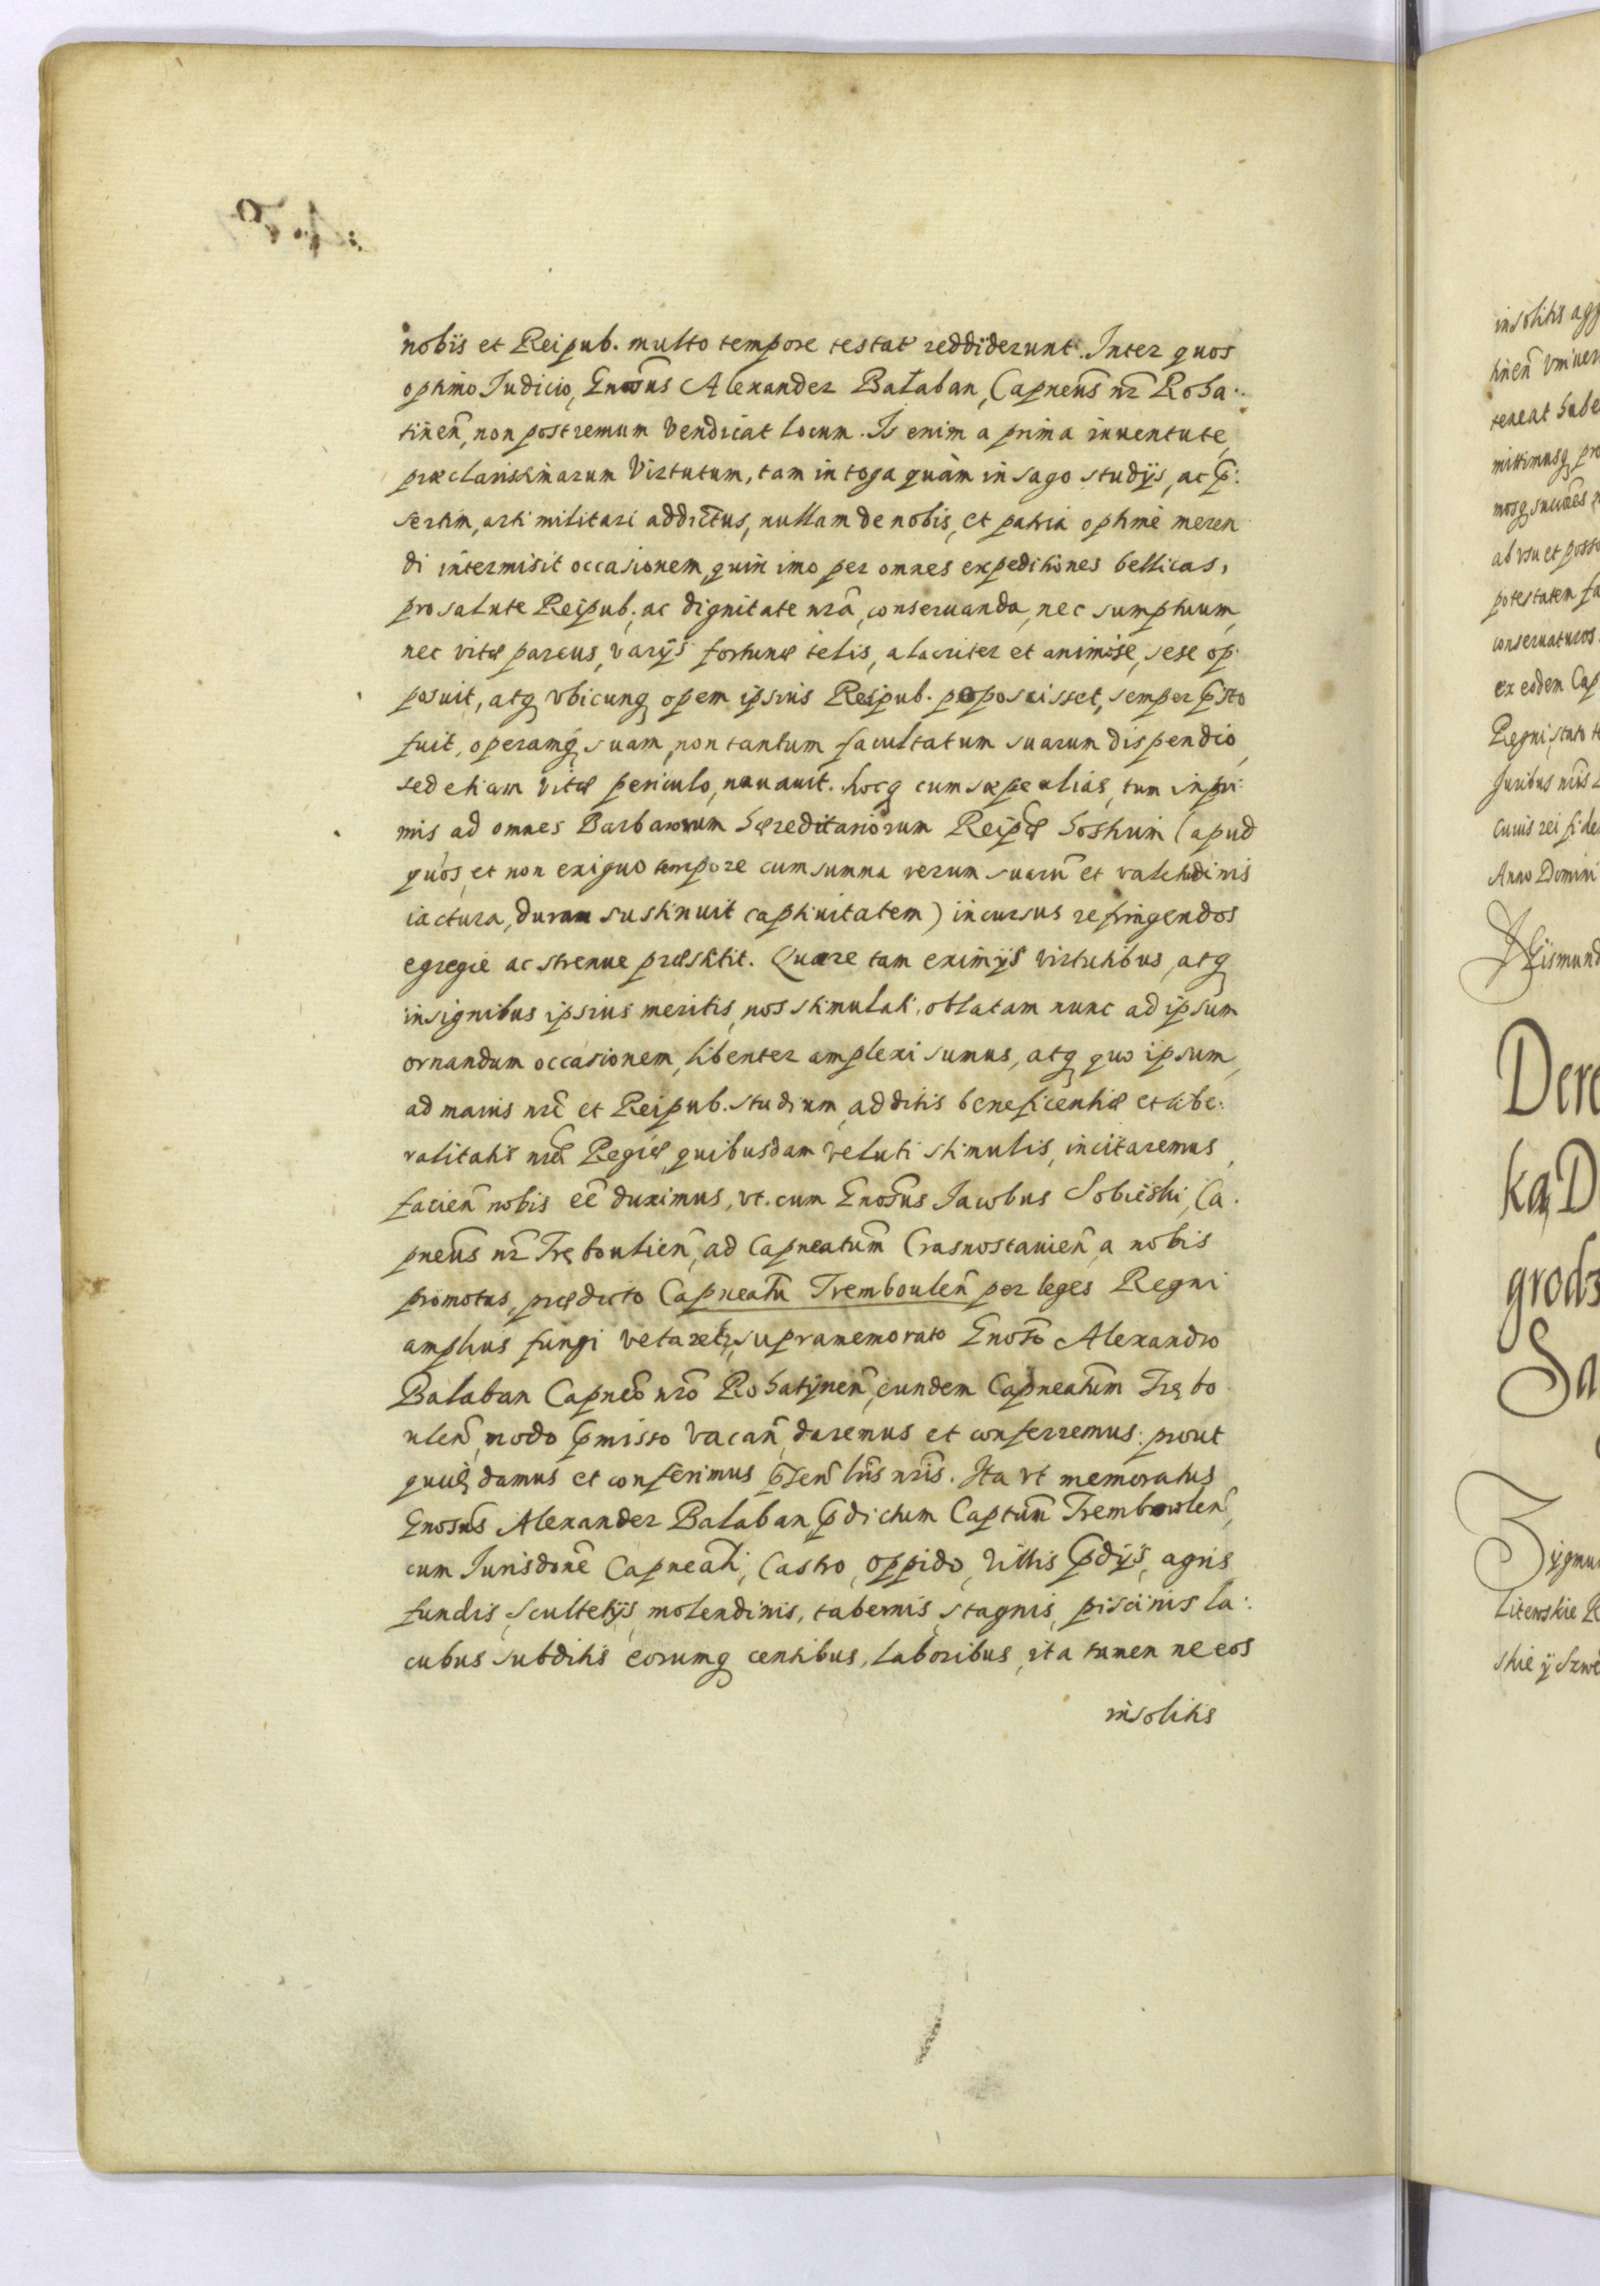 nobis et Reipub. multo tempore testat reddiderunt. Inter quos
optimo Iudicio, Gnosus Alexander Bałaban, Capneus nr Roha-
tinen, non postremum vendicat locum. Is enim a prima iuventute,
præclarissimarum Virtutum, tam in toga quàm in sago studijs, ac p̃-
sertim, arti militari addictus, nullam de nobis, et patria optimè meren
di intermisit occasionem, quin imo per omnes expeditiones bellicas,
pro salute Reipub. ac dignitate nrã, conseruanda, nec sumptuum,
nec vitæ parcus, varijs fortunæ telis, alacriter et animose, sese op-
posuit, atq vbicunq opem ipsius Reipub. poposcisset, semper p̃sto
fuit, operamq suam, non tantum facultatum suarum dispendio,
sed etiam vitæ periculo, nauauit. hocq cum sæpe alias, tum in pri-
mis ad omnes Barbarorum hæreditariorum Reipcæ hostium (apud
quos, et non exiguo tempore cum summa rerum suarũ et valetudinis
iactura, duram sustinuit captiuitatem) incursus refringendos
egregie ac strenue præstitit. Quare tam eximijs virtutibus, atq
insignibus ipsius meritis, nos stimulati, oblatam nunc ad ipsum
ornandum occasionem, libenter amplexi sumus, atq quo ipsum,
ad maius nrẽ et Reipub. studium, additis beneficentiæ et libe-
ralitatis nrẽ Regiæ, quibusdam veluti stimulis, incitaremus,
facien̄ nobis eē duximus, vt. cum Gnosus Iacobus Sobieski, Ca-
pneus nr Tręboulien̄, ad Capneatum̄ Crasnostauien̄, a nobis
promotus, prædicto Capneatu̅ Trembouleñ per leges Regni
amplius fungi vetaretr, supramemorato Gnoso Alexandro
Balaban Capneõ nrõ Rohatÿnen̄, eundem Capneatum̄ Trębo
ulen̄, modo p̃misso vacan̄, daremus et conferremus: prout
quidẽ, damus et conferimus p̃sen̄ lris nris. Ita vt memoratus
Gnosus Alexander Balaban p̃dictum Captum̄ Trembowlen̄,
cum Iurisdonẽ Capneati, Castro, oppido, Villis p̃dijs, agris
fundis, scultetijs, molendinis, tabernis, stagnis, piscinis la-
cubus, subditis eorumq centibus, laboribus, ita tamen ne eos
insolitis
insolitis
tineñ vniuer
teneat habe
mittimusq pro
ab vsu et posse
potestatem fa
conseruaturos.
ex eodem Cap
Iuribus nris
Cuius rei fide
Anno Domini
Dere
ka, D
grods
Sa
Zÿgmu
skie ÿ Szwe